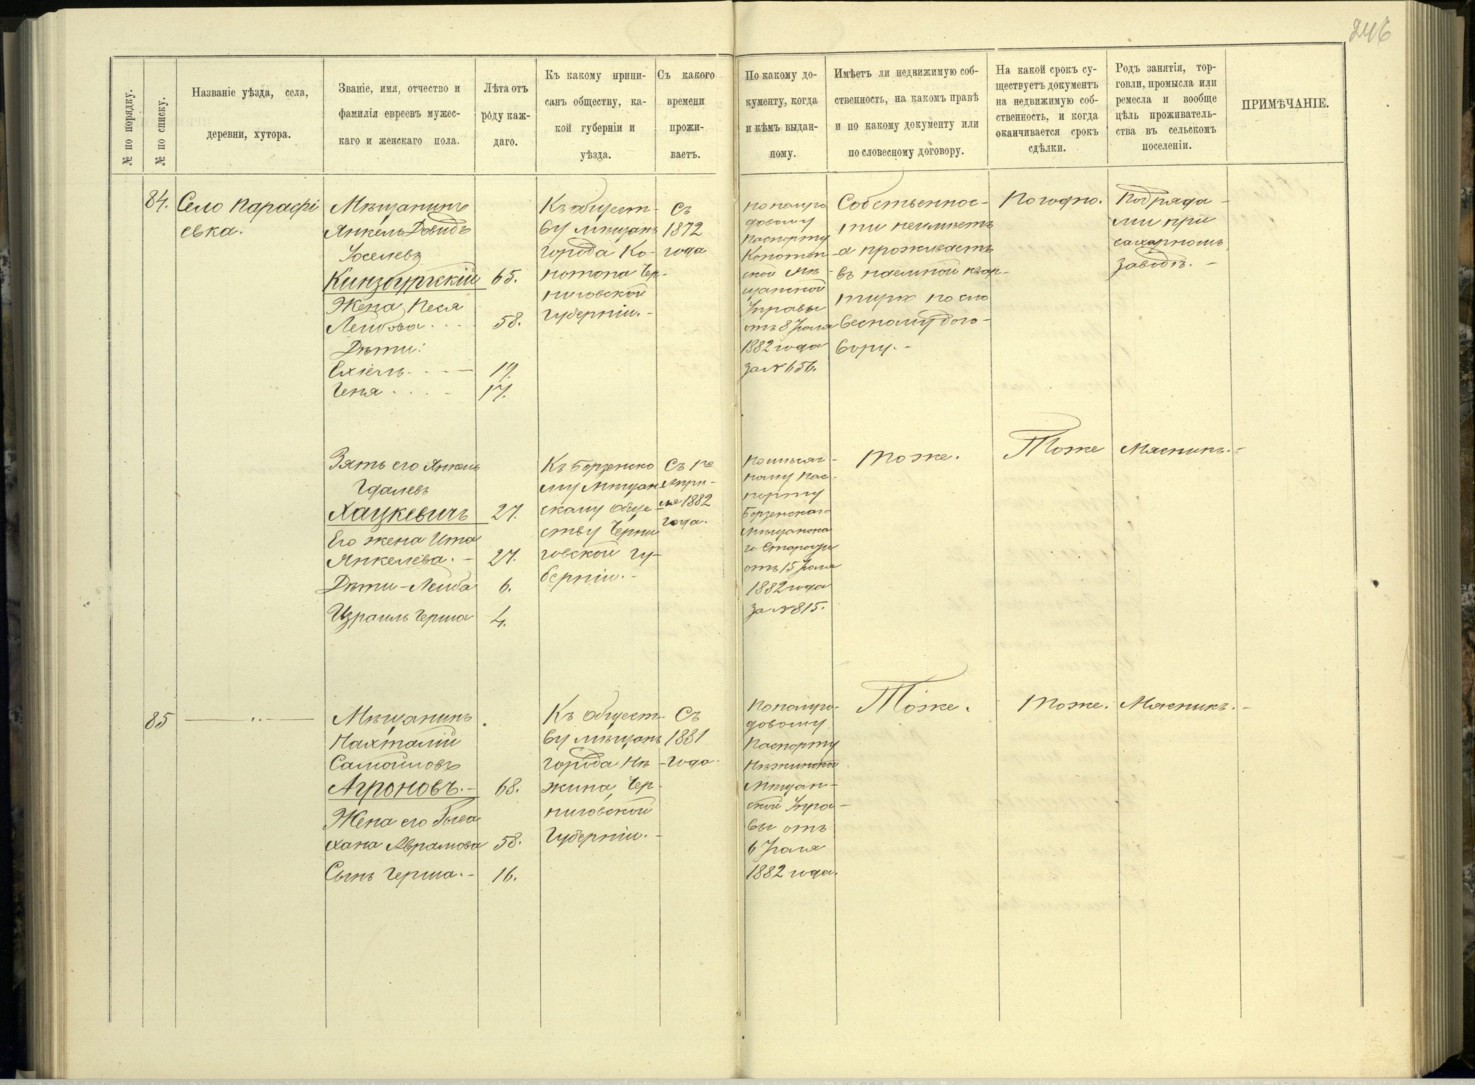 246
№ по порядку.
№ по списку.
Названіе уѣзда, села,
деревни, хутора.
Званіе, имя, отчество и
фамилія евреевъ мужес-
каго и женскаго пола.
Лѣта отъ
роду каж-
даго.
Къ какому припи-
санъ обществу, ка-
кой губерніи и
уѣзда.
Съ какого
времени
прожи-
ваетъ.
По какому до-
кументу, когда
и кѣмъ выдан-
ному.
Имѣетъ ли недвижимую соб-
ственность, на какомъ правѣ
и по какому документу или
по словесному договору.
На какой срокъ су-
ществуетъ документъ
на недвижимую соб-
ственность, и когда
оканчивается срокъ
сдѣлки.
Родъ занятія, тор-
говли, промысла или
ремесла и вообще
цѣль проживатель-
ства въ сельскомъ
поселеніи.
ПРИМѢЧАНІЕ.
84.
Село Парафі
евка.
Мѣщанинъ
Янкель Довидъ
Іоселевъ
Кинзбургскій 65.
Жена Песя
Лейбова 58.
Дѣти:
Ехіель 19.
Геня 17.
Къ общест-
ву мѣщанъ
города Ко-
нотопа Чер-
ниговской
Губерніи.
Съ
1872
года
по полуго
довому
Паспорту
Конотоп-
ской Мѣ-
щанской
Управы
отъ 8 Іюля
1882 года
за №656.
Собственнос-
ти неимѣетъ
а проживаетъ
въ наемной квар-
тирѣ по сло
весному дого-
вору.
Погодно.
Подряда-
ми при
сахарномъ
заводѣ.
Зять его Янкель
Гдалевъ
Хацкевичъ 27.
Его жена Ита
Янкелева. 27.
Дѣти - Лейба 6.
Израиль Герша 4.
Къ Борзенско
му Мѣщан
скому обще-
ству Черни
говской гу-
берніи.
Съ 1го
Апрѣ-
ля 1882
года.
Борзенскаго
отъ 15 Іюля
1882 года
за №815.
Тоже.
Тоже
Мясникъ.
85
Мѣщанинъ
Нахталій
Самойловъ
Агроновъ. 68.
Жена его
Хана Абрамова 58.
Сынъ Герша. 16.
Къ общест-
ву мѣщанъ
города Нѣ-
жина, Чер-
ниговской
Губерніи.
Съ
1881
года
По полуго-
довому
Паспорту
Нѣжинской
Мѣщан-
ской Упра-
вы отъ
6 Іюля
1882 года.
Тоже.
Тоже.
Мясникъ.